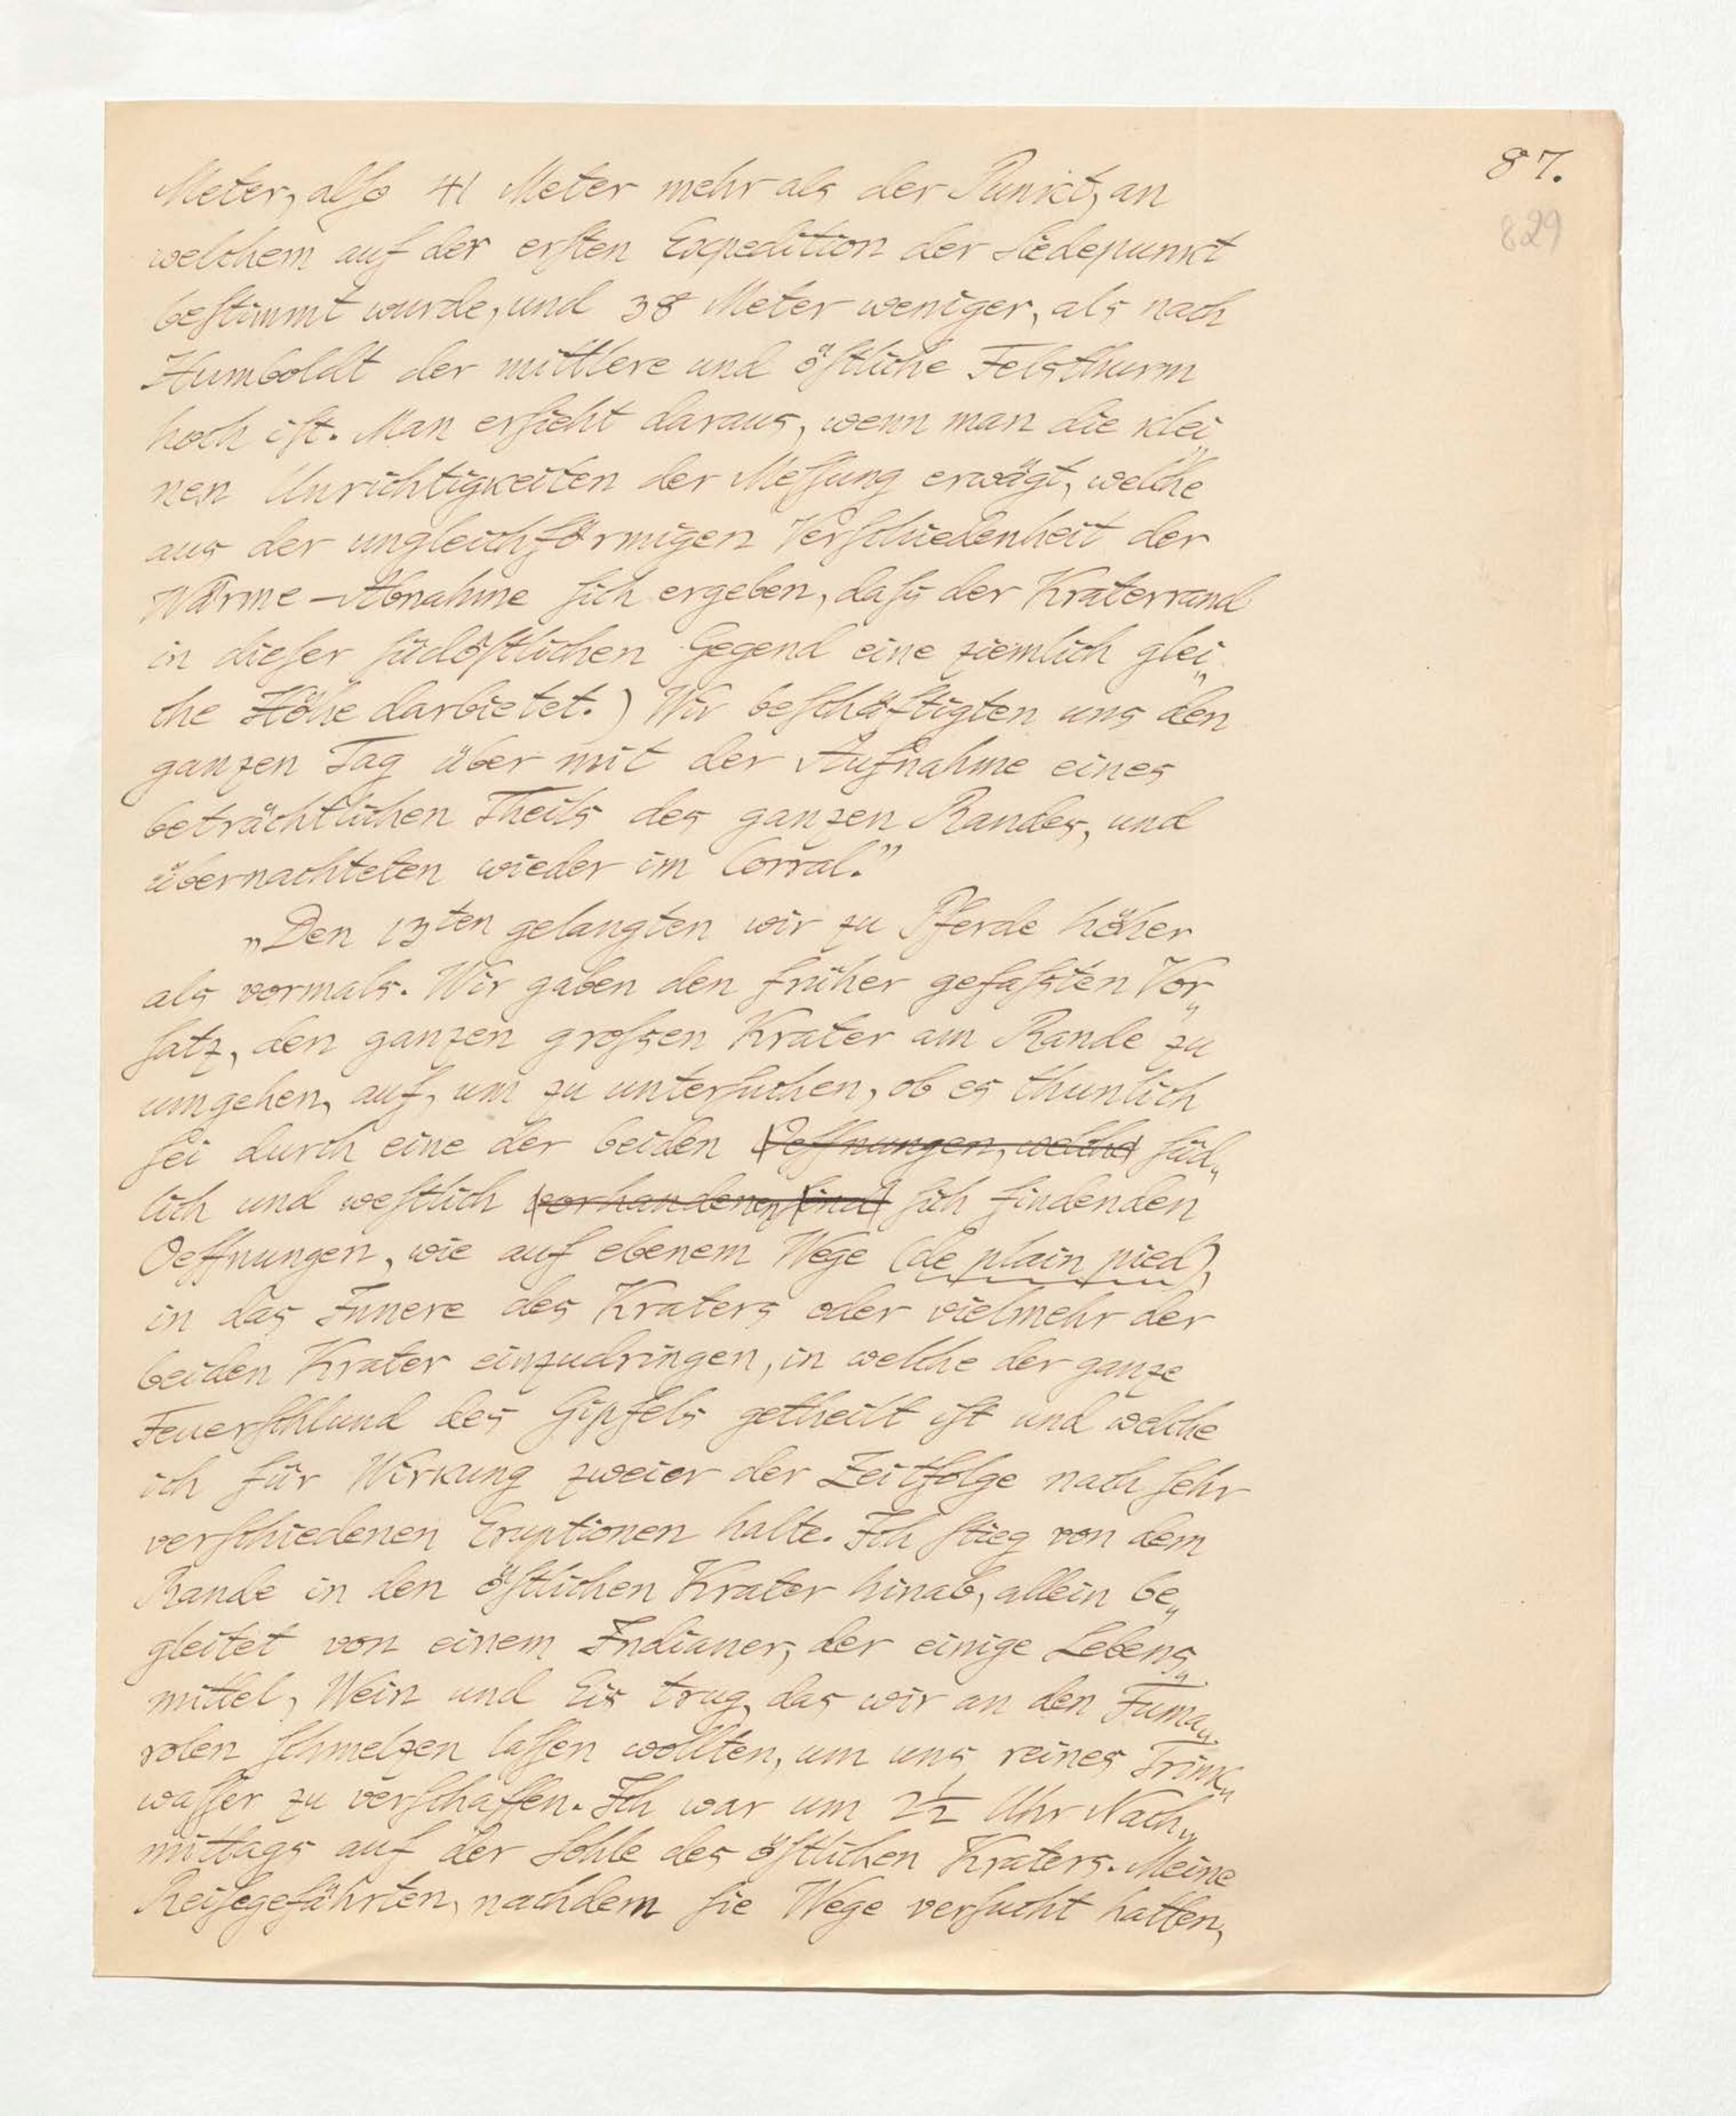 87.
829
Meter, alſo 41 Meter mehr als der Punkt, an
welchem auf der erſten Expedition der Siedepunkt
beſtimmt wurde, und 38 Meter weniger, als nach
Humboldt der mittlere und öſtliche Felsthurm
hoch iſt. Man erſieht daraus, wenn man die klei„
nen Unrichtigkeiten der Meſſung erwägt, welche
aus der ungleichförmigen Verſchiedenheit der
Wärme-Abnahme ſich ergeben, daſs der Kraterrand
in dieſer ſüdöſtlichen Gegend eine ziemlich glei„
che Höhe darbietet.) Wir beſchäftigten uns den
ganzen Tag über mit der Aufnahme eines
beträchtlichen Theils des ganzen Randes, und
übernachteten wieder im Corral."
„Den 13ten gelangten wir zu Pferde höher
als vormals. Wir gaben den früher gefaſsten Vor„
ſatz, den ganzen groſsen Krater am Rande zu
umgehen, auf, um zu unterſuchen, ob es thunlich
ſei durch eine der beiden Oeffnungen, welche ſüd„
lich und weſtlich vorhandenen ſind ſich findenden
Oeffnungen, wie auf ebenem Wege (de plain pied),
in das Innere des Kraters oder vielmehr der
beiden Krater einzudringen, in welche der ganze
Feuerſchlund des Gipfels getheilt iſt und welche
ich für Wirkung zweier der Zeitfolge nach ſehr
verſchiedenen Eruptionen halte. Ich ſtieg von dem
Rande in den öſtlichen Krater hinab, allein be„
gleitet von einem Indianer, der einige Lebens„
mittel, Wein und Eis trug, das wir an den Fuma„
rolen ſchmelzen laſſen wollten, um uns reines Trink„
waſſer zu verſchaffen. Ich war um 2½ Uhr Nach„
mittags auf der Sohle des öſtlichen Kraters. Meine
Reiſegefährten, nachdem ſie Wege verſucht hatten,